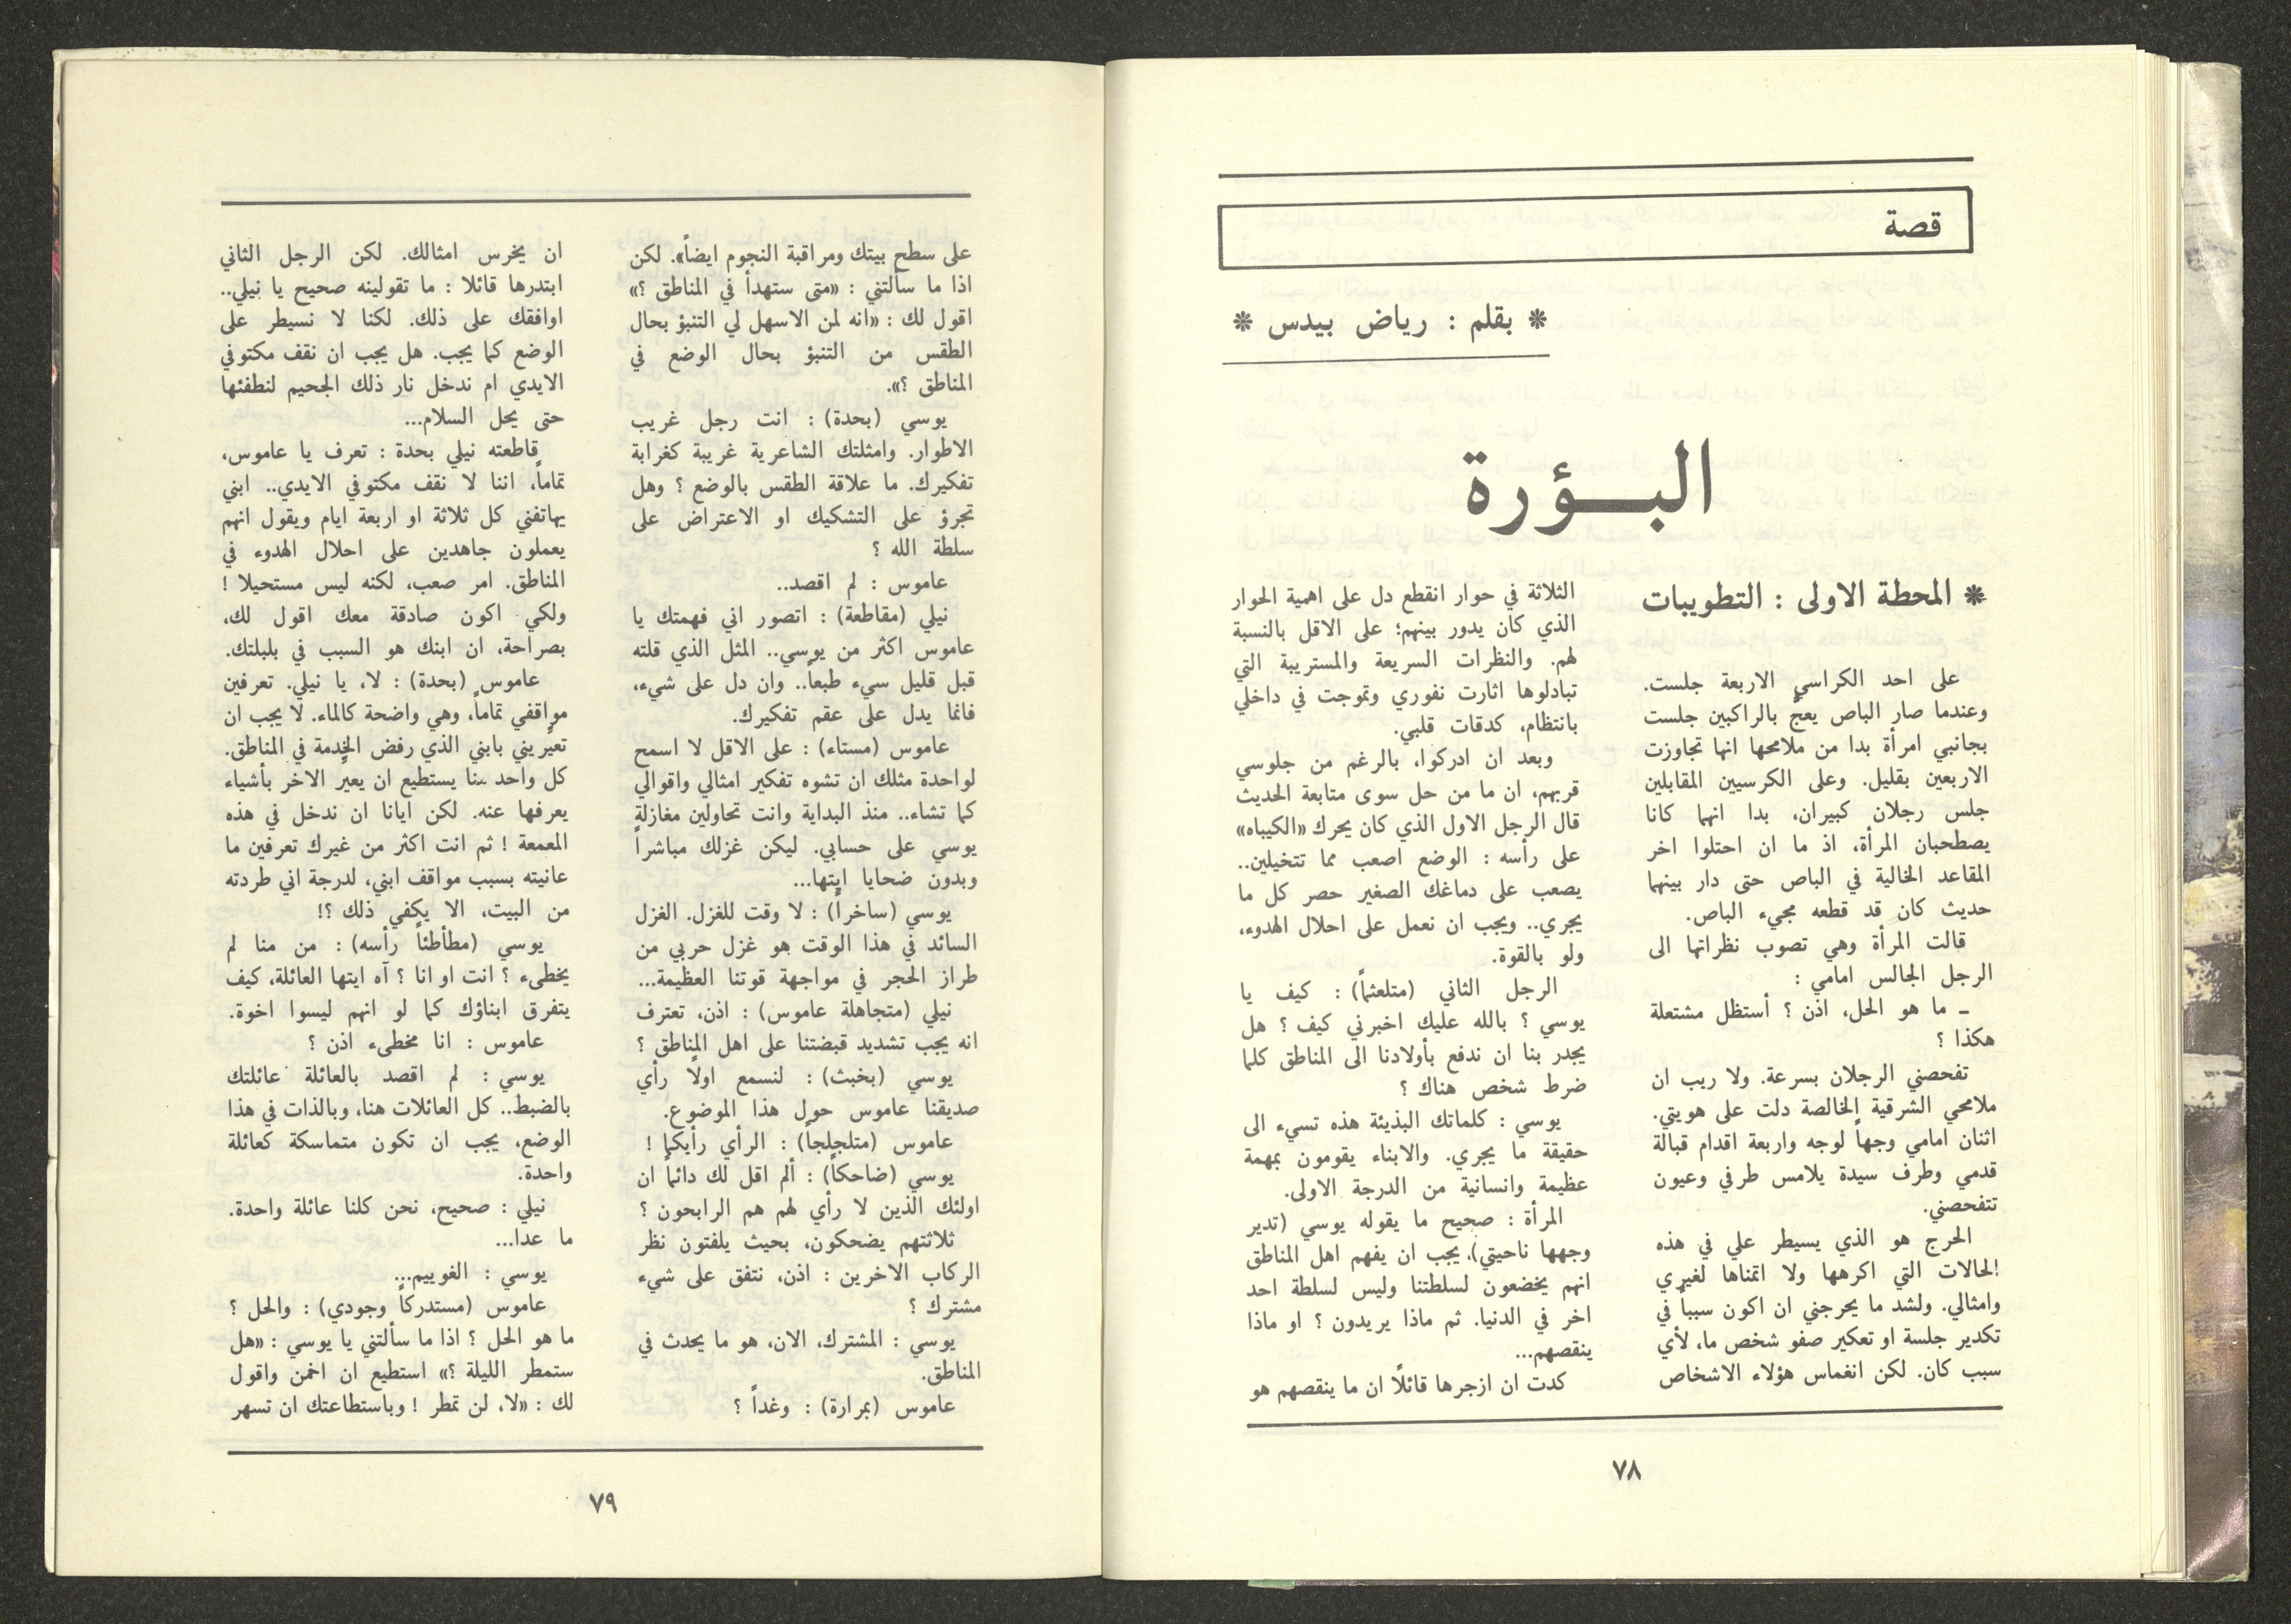 قصة
* بقلم : رياض بيدس *
البؤرة
* المحطة الاولى : التطويبات
على احد الكراسي الاربعة جلست.
وعندما صار الباص يعجّ بالراكبين جلست
بجانبي امرأة بدا من ملامحها انها تجاوزت
الاربعين بقليل. وعلى الكرسيين المقابلين
جلس رجلان كبيران، بدا انهما كانا
يصطحبان المرأة، اذ ما ان احتلوا اخر
المقاعد الخالية في الباص حتى دار بينهما
حديث كان قد قطعه مجيء الباص.
قالت المرأة وهي تصوب نظراتها الى
الرجل الجالس امامي :
ـ ما هو الحل، اذن ؟ أستظل مشتعلة
هكذا ؟
تفحصني الرجلان بسرعة. ولا ريب ان
ملامحي الشرقية الخالصة دلت على هويتي.
اثنان امامي وجهاً لوجه واربعة اقدام قبالة
قدمي وطرف سيدة يلامس طرفي وعيون
تتفحصني.
الحرج هو الذي يسيطر علي في هذه
الحالات التي اكرهها ولا اتمناها لغيري
وامثالي. ولشد ما يحرجني ان اكون سبباً في
تكدير جلسة او تعكير صفو شخص ما، لأي
سبب كان. لكن انغماس هؤلاء الاشخاص
الثلاثة في حوار انقطع دل على اهمية الحوار
الذي كان يدور بينهم؛ على الاقل بالنسبة
لهم. والنظرات السريعة والمستريبة التي
تبادلوها اثارت نفوري وتموجت في داخلي
بانتظام، كدقات قلبي.
وبعد ان ادركوا، بالرغم من جلوسي
قربهم، ان ما من حل سوى متابعة الحديث
قال الرجل الاول الذي كان يحرك «الكيباه»
على رأسه : الوضع اصعب مما تتخيلين..
يصعب على دماغك الصغير حصر كل ما
يجري.. ويجب ان نعمل على احلال الهدوء،
ولو بالقوة.
الرجل الثاني (متلعثماً) : كيف يا
يوسي ؟ بالله عليك اخبرني كيف ؟ هل
يجدر بنا ان ندفع بأولادنا الى المناطق كلما
ضرط شخص هناك ؟
يوسي : كلماتك البذيئة هذه تسيء الى
حقيقة ما يجري. والابناء يقومون بمهمة
عظيمة وانسانية من الدرجة الاولى.
المرأة : صحيح ما يقوله يوسي (تدير
وجهها ناحيتي)، يجب ان يفهم اهل المناطق
انهم يخضعون لسلطتنا وليس لسلطة احد
اخر في الدنيا. ثم ماذا يريدون ؟ او ماذا
ينقصهم...
كدت ان ازجرها قائلاً ان ما ينقصهم هو
٧٨
على سطح بيتك ومراقبة النجوم ايضاً». لكن
اذا ما سألتني : «متى ستهدأ في المناطق ؟»
اقول لك : «انه لمن الاسهل لي التنبؤ بحال
الطقس من التنبؤ بحال الوضع في
المناطق ؟».
يوسي (بحدة) : انت رجل غريب
الاطوار. وامثلتك الشاعرية غريبة كغرابة
تفكيرك. ما علاقة الطقس بالوضع ؟ وهل
تجرؤ على التشكيك او الاعتراض على
سلطة الله ؟
عاموس : لم اقصد..
نيلي (مقاطعة) : اتصور اني فهمتك يا
عاموس اكثر من يوسي.. المثل الذي قلته
قبل قليل سيء طبعاً.. وان دل على شيء،
فانما يدل على عقم تفكيرك.
عاموس (مستاء) : على الاقل لا اسمح
لواحدة مثلك ان تشوه تفكير امثالي واقوالي
كما تشاء.. منذ البداية وانت تحاولين مغازلة
يوسي على حسابي. ليكن غزلك مباشراً
وبدون ضحايا ايتها...
يوسي (ساخراً) : لا وقت للغزل. الغزل
السائد في هذا الوقت هو غزل حربي من
طراز الحجر في مواجهة قوتنا العظيمة...
نيلي (متجاهلة عاموس) : اذن، تعترف
انه يجب تشديد قبضتنا على اهل المناطق ؟
يوسي (بخبث) : لنسمع اولاً رأي
صديقنا عاموس حول هذا الموضوع.
عاموس (متلجلجاً) : الرأي رأيكما !
يوسي (ضاحكاً) : ألم اقل لك دائماً ان
اولئك الذين لا رأي لهم هم الرابحون ؟
ثلاثتهم يضحكون، بحيث يلفتون نظر
الركاب الاخرين : اذن، نتفق على شيء
مشترك ؟
يوسي : المشترك، الان، هو ما يحدث في
المناطق.
عاموس (بمرارة) : وغداً ؟
ان يخرس امثالك. لكن الرجل الثاني
ابتدرها قائلا : ما تقولينه صحيح يا نيلي..
اوافقك على ذلك. لكنا لا نسيطر على
الوضع كما يجب. هل يجب ان نقف مكتوفي
الايدي ام ندخل نار ذلك الجحيم لنطفئها
حتى يحل السلام...
قاطعته نيلي بحدة : تعرف يا عاموس،
تماماً، اننا لا نقف مكتوفي الايدي.. ابني
يهاتفني كل ثلاثة او اربعة ايام ويقول انهم
يعملون جاهدين على احلال الهدوء في
المناطق. امر صعب، لكنه ليس مستحيلا !
ولكي اكون صادقة معك اقول لك،
بصراحة، ان ابنك هو السبب في بلبلتك.
عاموس (بحدة) : لا، يا نيلي. تعرفين
مواقفي تماماً، وهي واضحة كالماء. لا يجب ان
تعيّريني بابني الذي رفض الخدمة في المناطق.
كل واحد منا يستطيع ان يعيّر الاخر بأشياء
يعرفها عنه. لكن ايانا ان ندخل في هذه
المعمعة ! ثم انت اكثر من غيرك تعرفين ما
عانيته بسبب مواقف ابني، لدرجة اني طردته
من البيت، الا يكفي ذلك ؟!
يوسي (مطأطئاً رأسه) : من منا لم
يخطىء ؟ انت او انا ؟ آه ايتها العائلة، كيف
يتفرق ابناؤك كما لو انهم ليسوا اخوة.
عاموس : انا مخطىء اذن ؟
يوسي : لم اقصد بالعائلة عائلتك
بالضبط.. كل العائلات هنا، وبالذات في هذا
الوضع، يجب ان تكون متماسكة كعائلة
واحدة.
نيلي : صحيح، نحن كلنا عائلة واحدة.
ما عدا...
يوسي : الغوييم...
عاموس (مستدركاً وجودي) : والحل ؟
ما هو الحل ؟ اذا ما سألتني يا يوسي : «هل
ستمطر الليلة ؟» استطيع ان اخمن واقول
لك : «لا، لن تمطر ! وباستطاعتك ان تسهر
٧٩